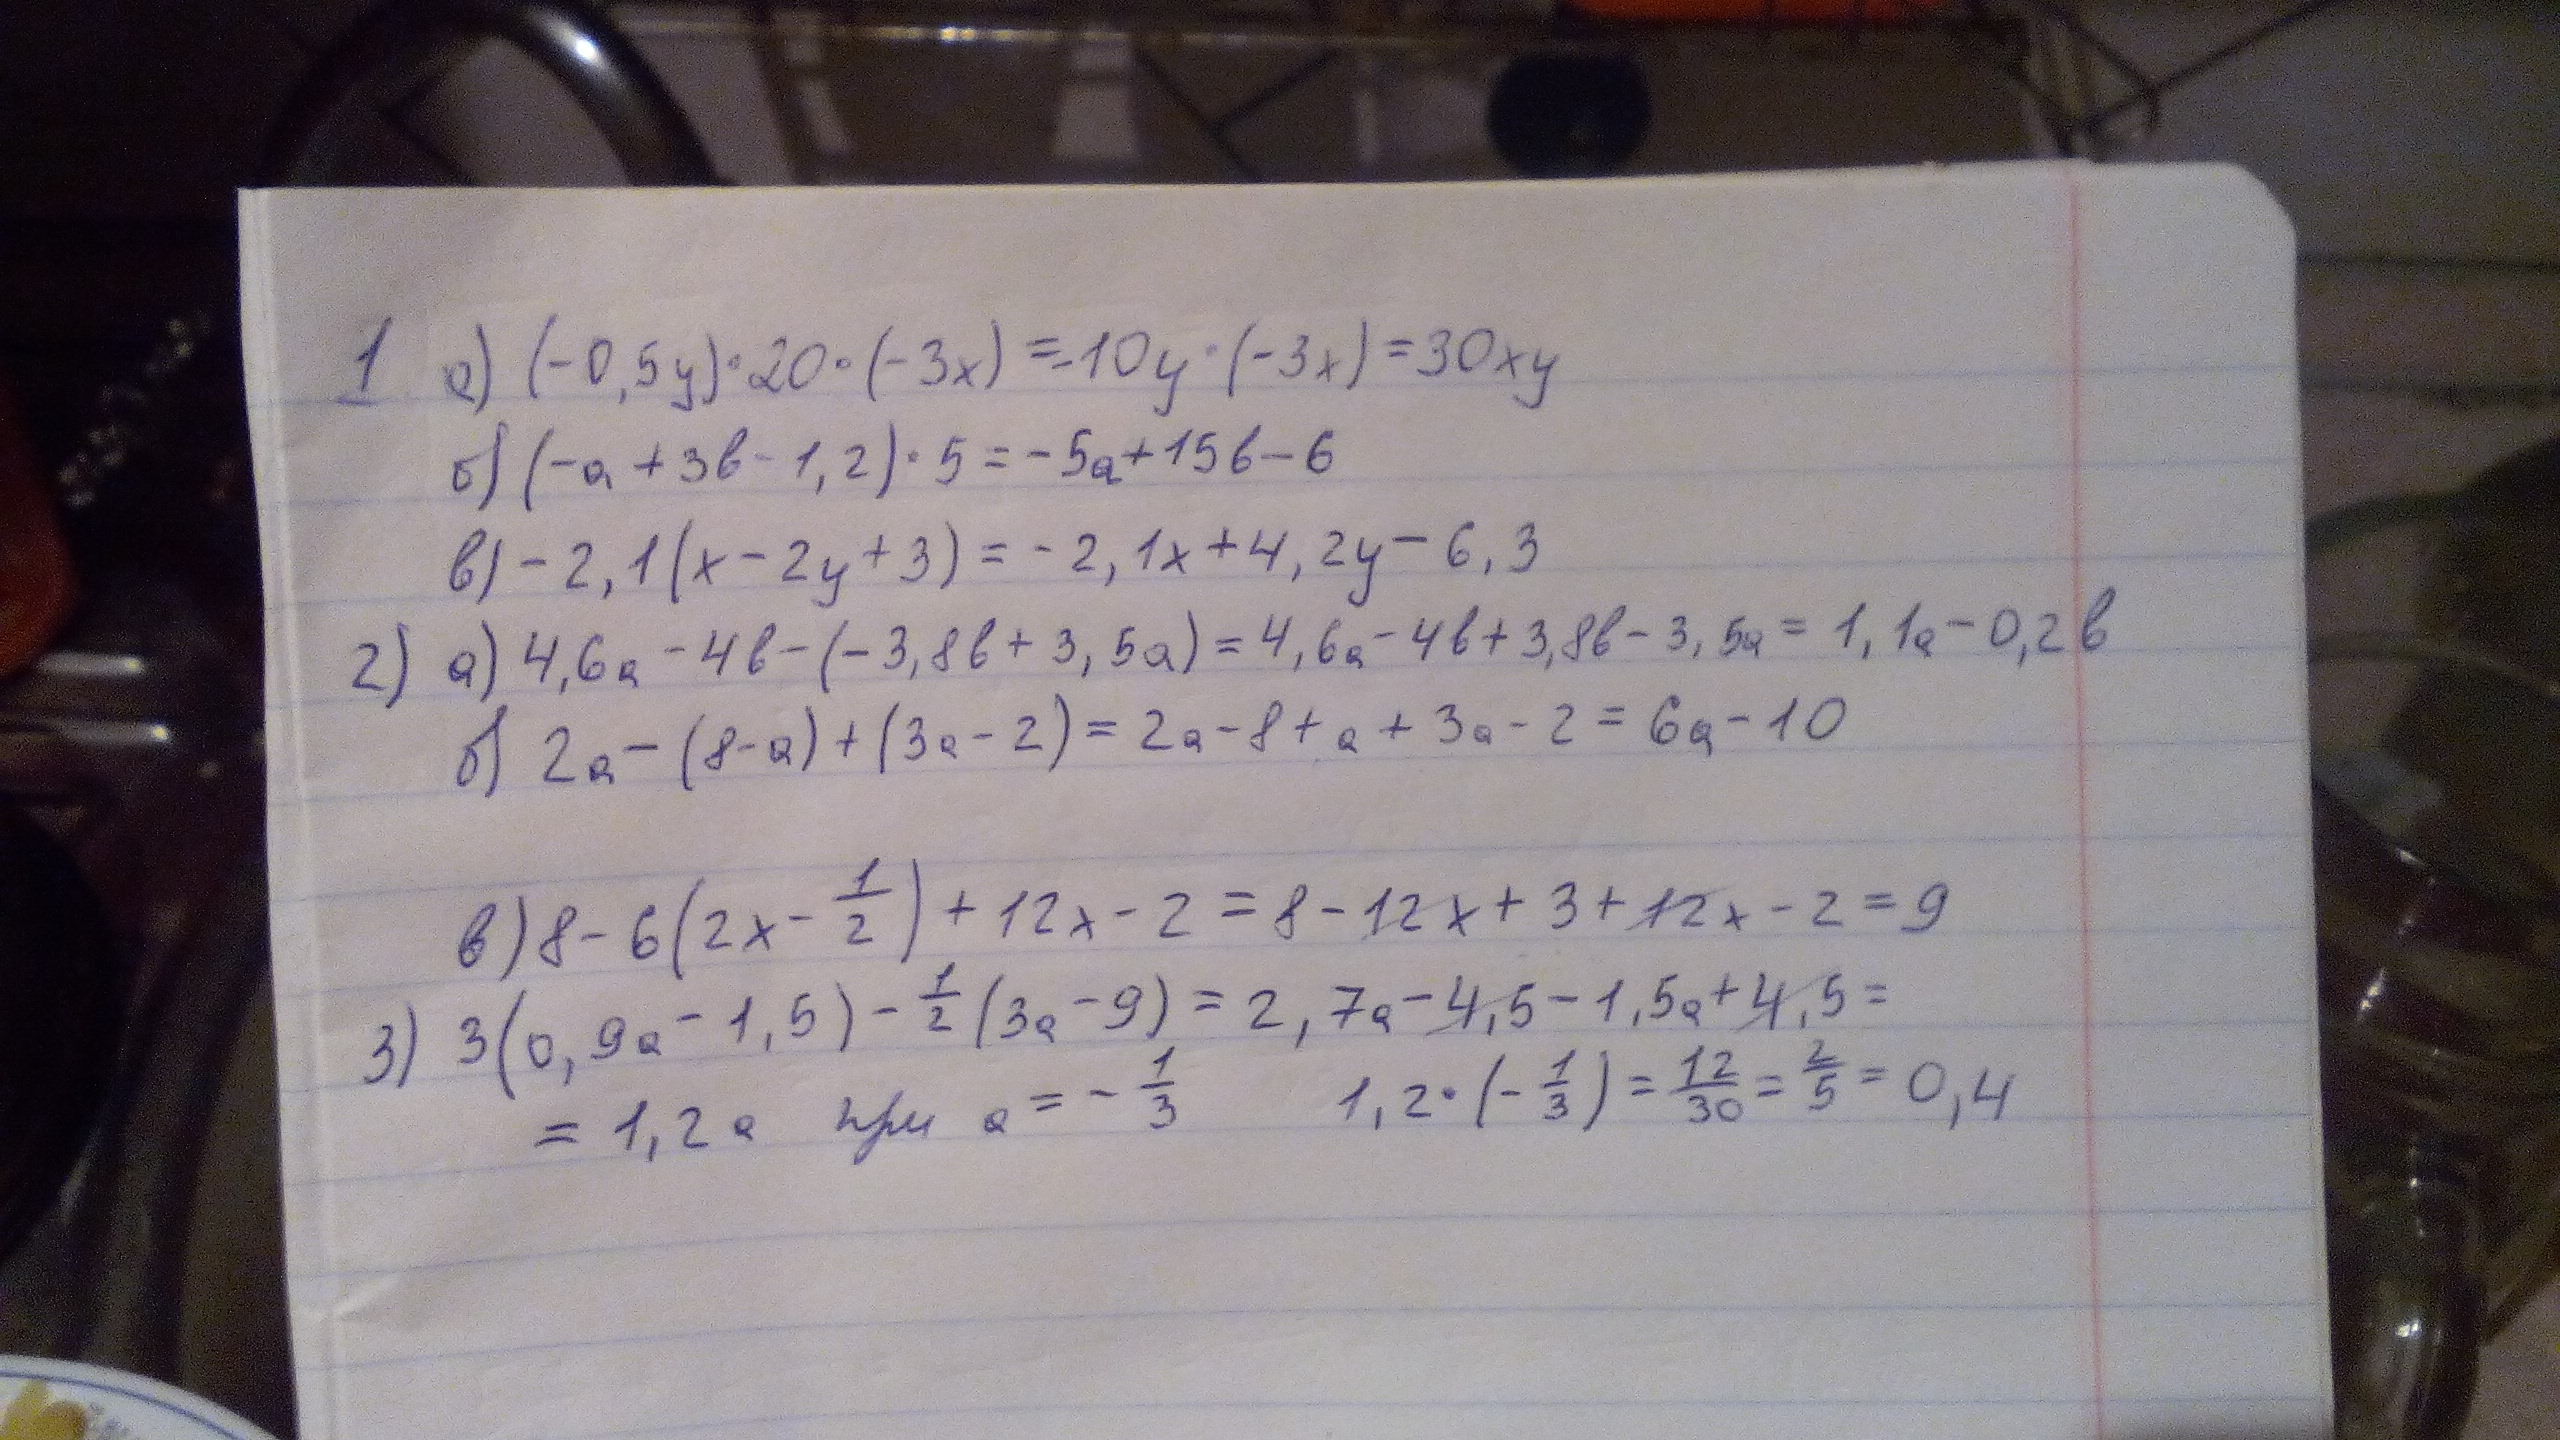 1 а) (-0,5y)·20·(-3x) =-10y·(-3x)=30xy
б) (-a+3b-1,2)·5=-5a+15b-6
в) -2,1(x-2y+3)=-2,1x+4,2y-6,3
2) а) 4,6a-4b-(-3,8b+3,5a)=4,6a-4b+3,8b-3,5a=1,1a-0,2b
б) 2a-(8-a)+(3a-2)=2a-8+a+3a-2=6a-10
в) 8-6(2x-1/2)+12x-2=8-12x+3+12x-2=9
3) 3(0,9a-1,5)-1/2(3a-9)=2,7a-4,5-1,5a+4,5=
=1,2a при a=-1/3 1,2·(-1/3)=12/30=2/5=0,4